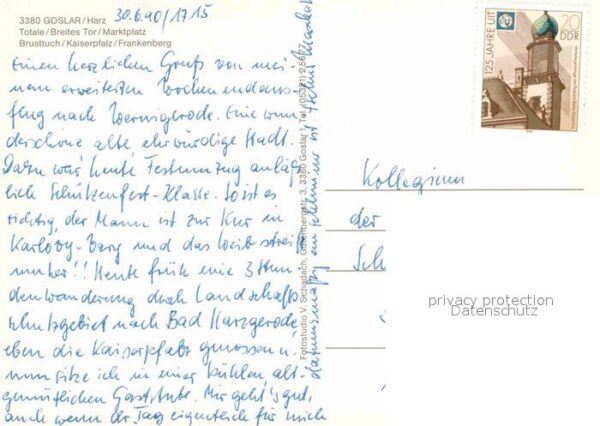 3380 GOSLAR/Harz
Totale/Breites Tor/Marktplatz
Brusttuch/Kaiserpfalz/Frankenberg
30.6.90/1715
Einen herzlichen Gruß von mei-
nem erweiterten Wochenendaus-
flug nach Wernigerode. Eine wun
derschöne alte ehrwürdige Stadt.
Dazu war heute Festumzug anläß-
lich Schützenfest-Klasse. So ist es
richtig, der Mann ist zur Kur in
Karlovy-Vary und das Weib streift
umher!! Heute früh eine 3 Stun
denwanderung durch Landschafts
schutzgebiet nach Bad Harzgerode,
eben die Kaiserpfalz genossen u.
nun sitze ich in einer kühlen alt-
gemütlichen Gaststube. Mir geht's gut,
auch wenn der Tag eigentlich für mich
Fotostudio V. Schadach, Gutenbergstr. 3, 3380 Goslar 1, Tel. (05321)
ein schlimmer ist.
125 JAHRE UIT
20
DDR
Kollegium
der
Sch
privacy protection
Datenschutz